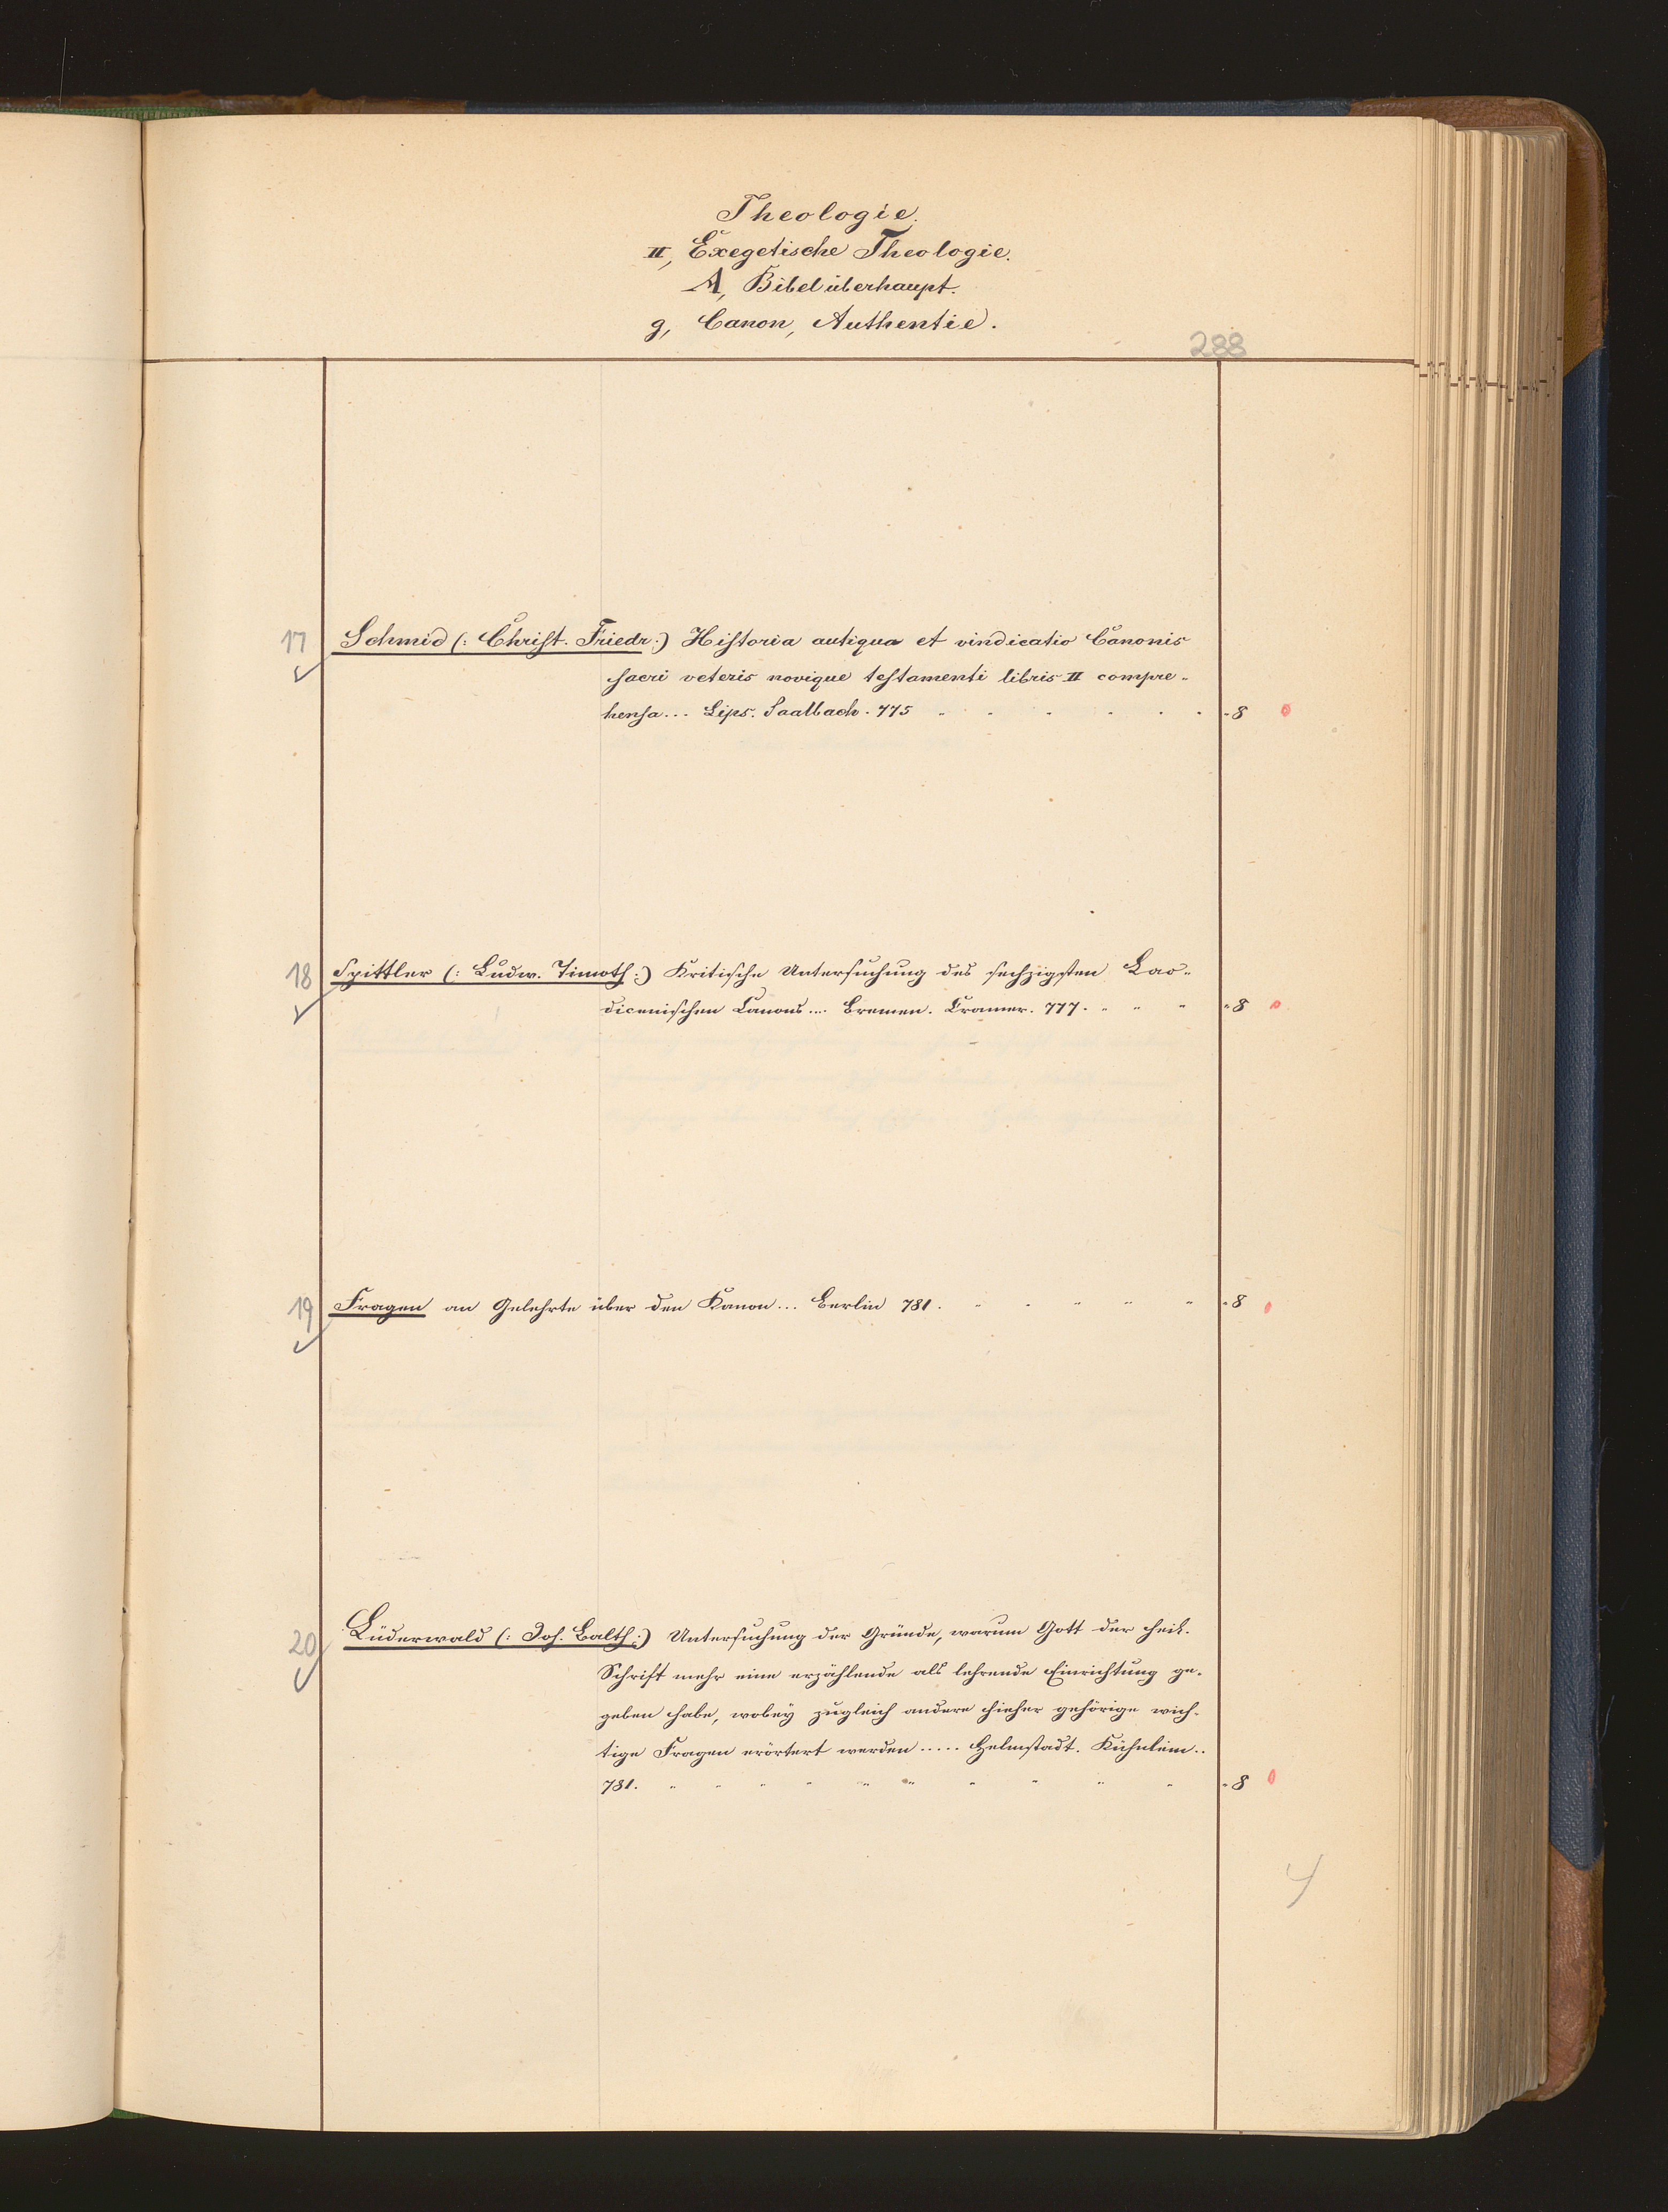 Theologie.
II, Exegetische Theologie.
A, Bibel überhaupt.
g, Canon, Authentie.
288
17 Schmid (: Christ. Friedr:) Historia antiqua et vindicatio Canonis
sacri veteris novique testamenti libris II compre-
hensa... Lips. Saalbach. 775 " " " " " " " 8 0
18 Spittler (: Ludw. Timoth:) Kritische Untersuchung des sechzigsten Lao-
dicenischen Canons.... Bremen. Cramer. 777. " " " " 8 0
19 Fragen an Gelehrte über den Kanon... Berlin 781. " " " " " " 8 0
20 Lüderwald (: Joh. Balth:) Untersuchung der Gründe, warum Gott der heil.
Schrift mehr eine erzählende als lehrende Einrichtung ge-
geben habe, wobey zugleich andere hieher gehörige wich-
tige Fragen erörtert werden..... Helmstadt. Kühnlein..
781. " " " " " " " " " " " 8 0
4